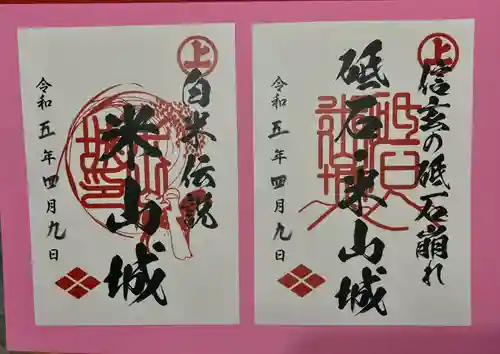 上
白米伝説
米山城
令和五年四月九日
上
信玄の砥石崩れ
砥石・米山城
令和五年四月九日